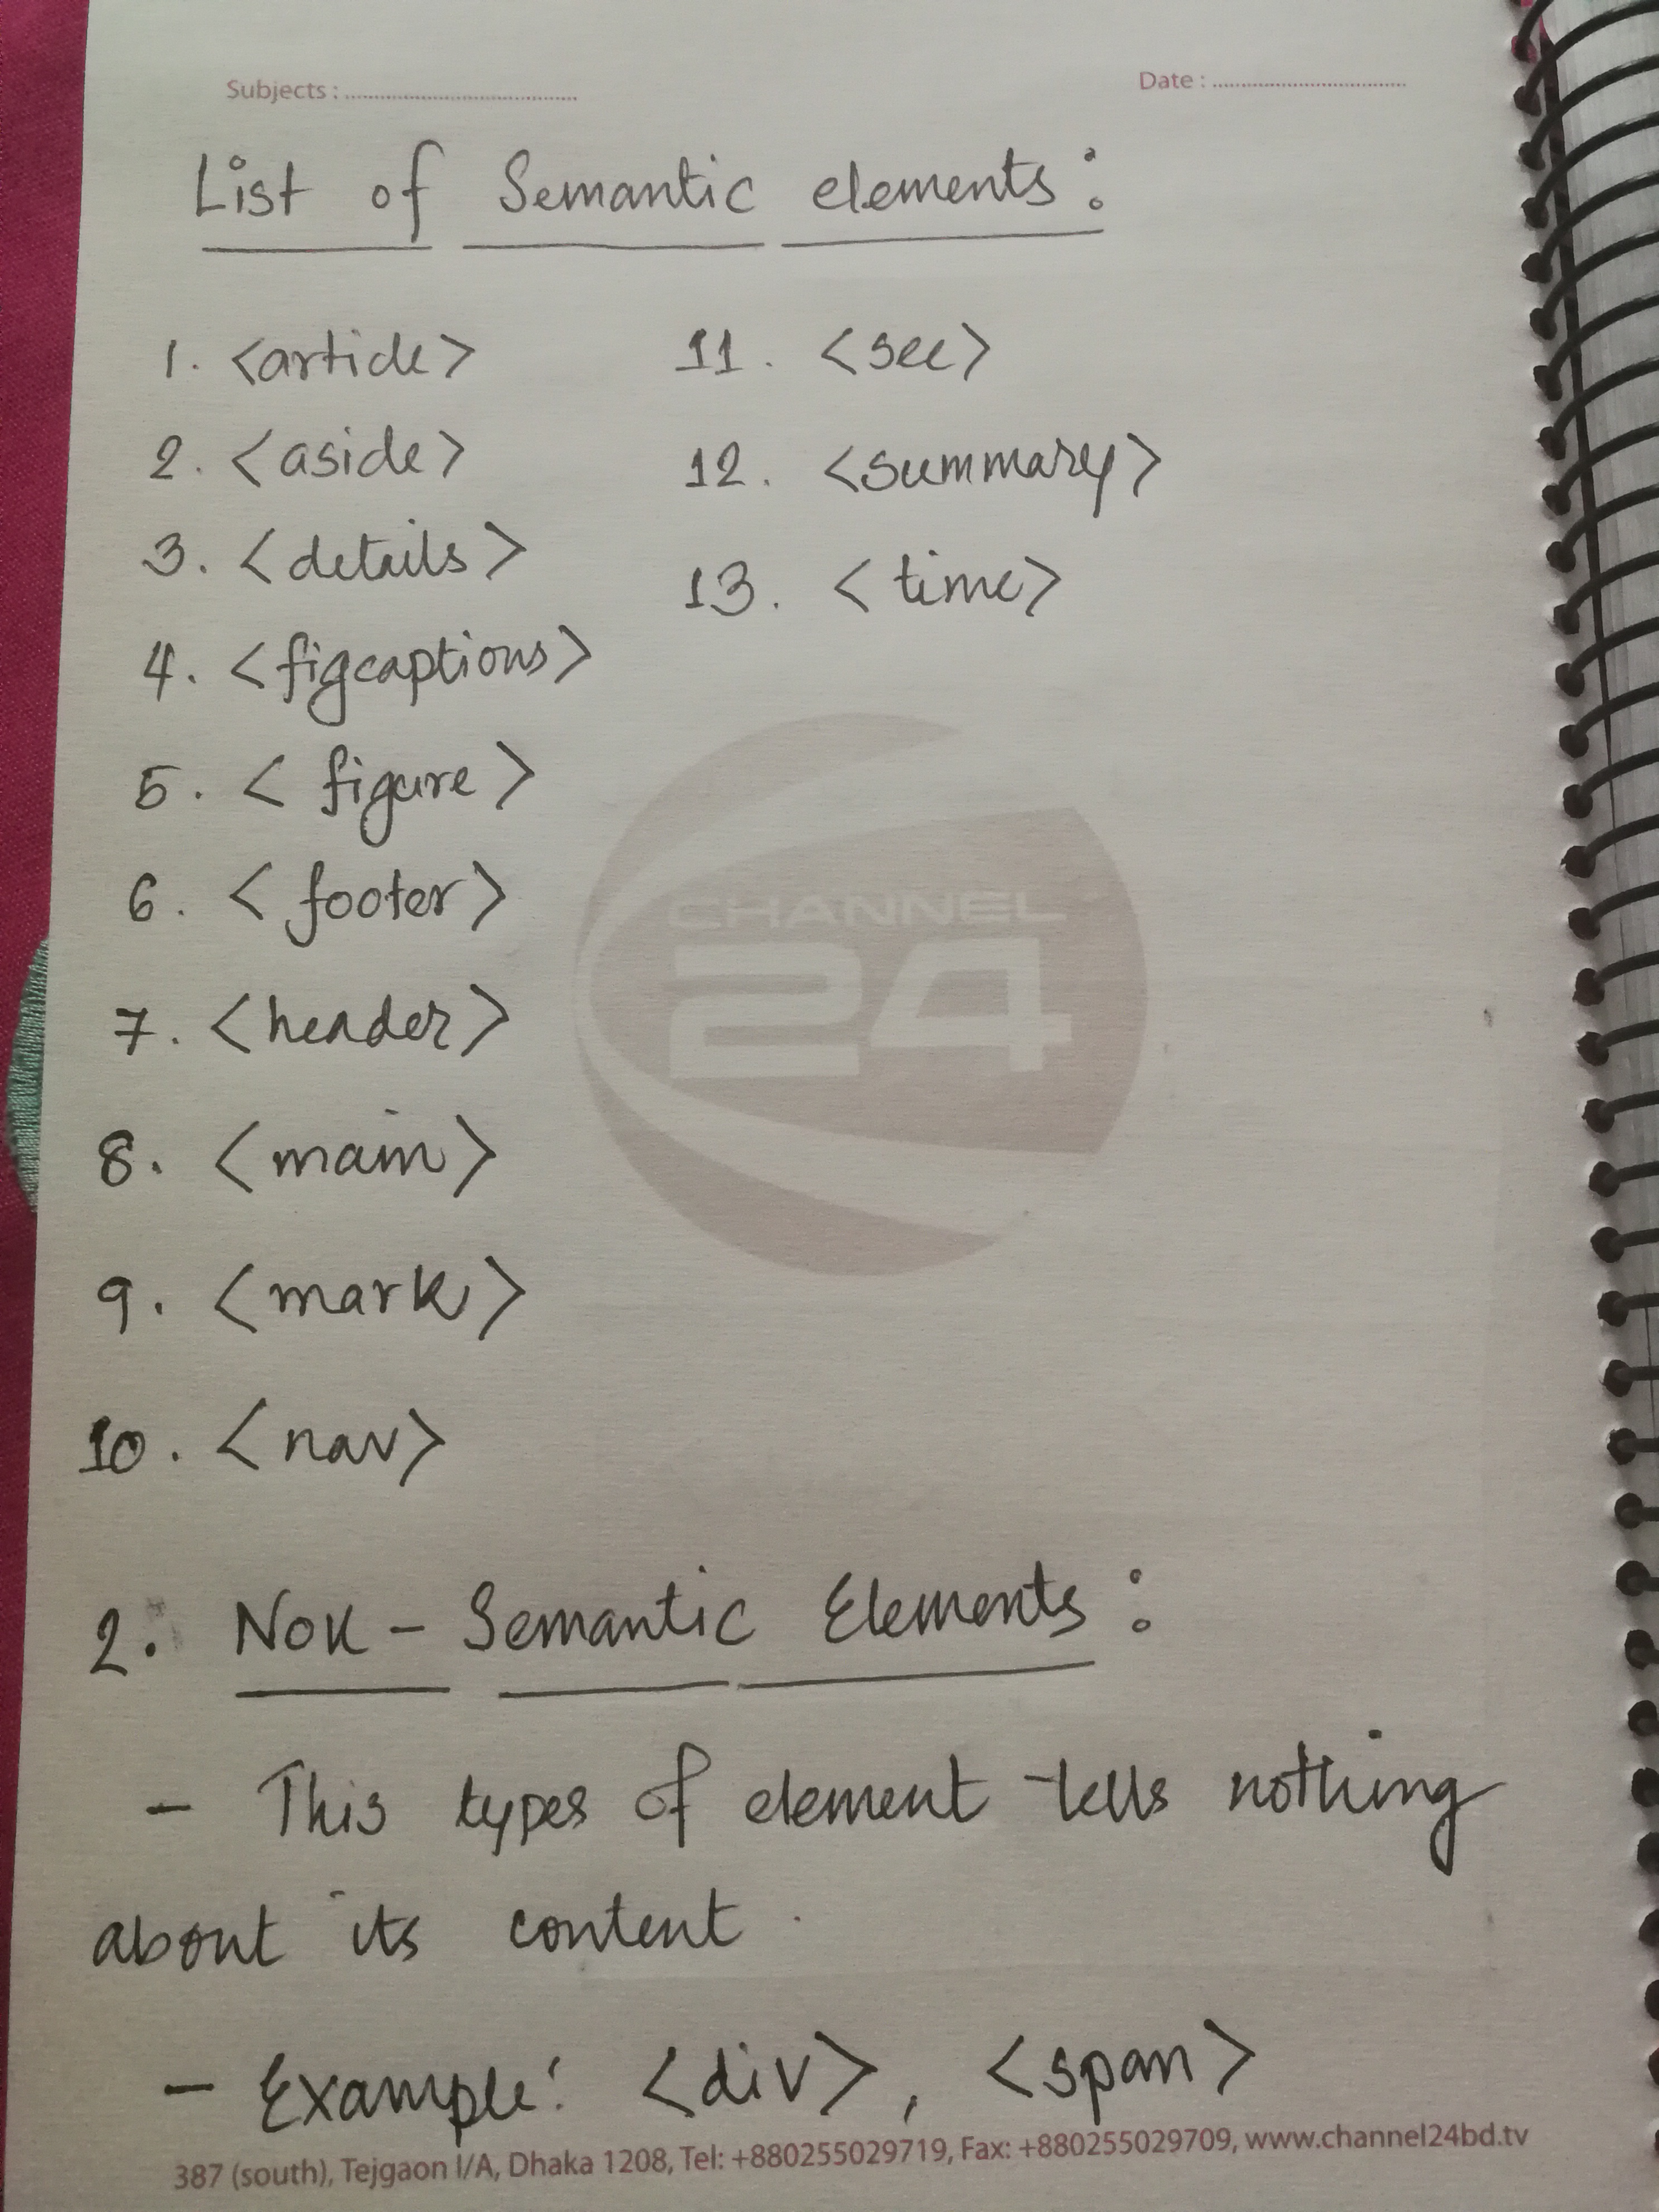 Subjects : ........................................
Date : ........................................
List of Semantic elements :
1. <article>
2. <aside>
3. <details>
4. <figcaptions>
5. < figure >
6. < footer>
7. <header>
8. <main>
9. <mark>
10. <nav>
11. <sec>
12. <summary>
13. <time>
CHANNEL
24
2. Non - Semantic Elements :
- This types of element tells nothing
about its content .
- Example: <div>, <span>
387 (south), Tejgaon I/A, Dhaka 1208, Tel: +880255029719, Fax: +880255029709, www.channel24bd.tv